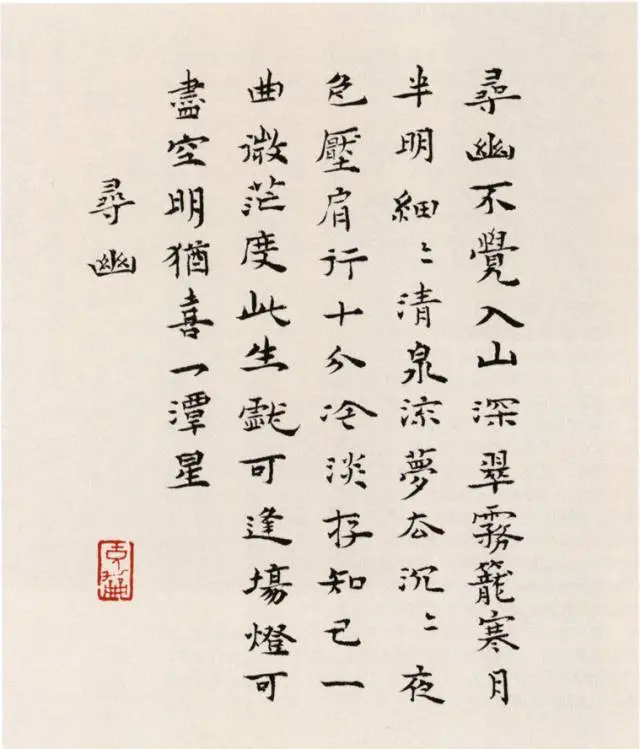 尋幽不覺入山深翠霧籠寒月
半明細〻清泉涼夢太沉〻夜
色壓肩行十分冷淡存知己一
曲微茫度此生戲可逢場燈可
盡空明猶喜一潭星
尋幽